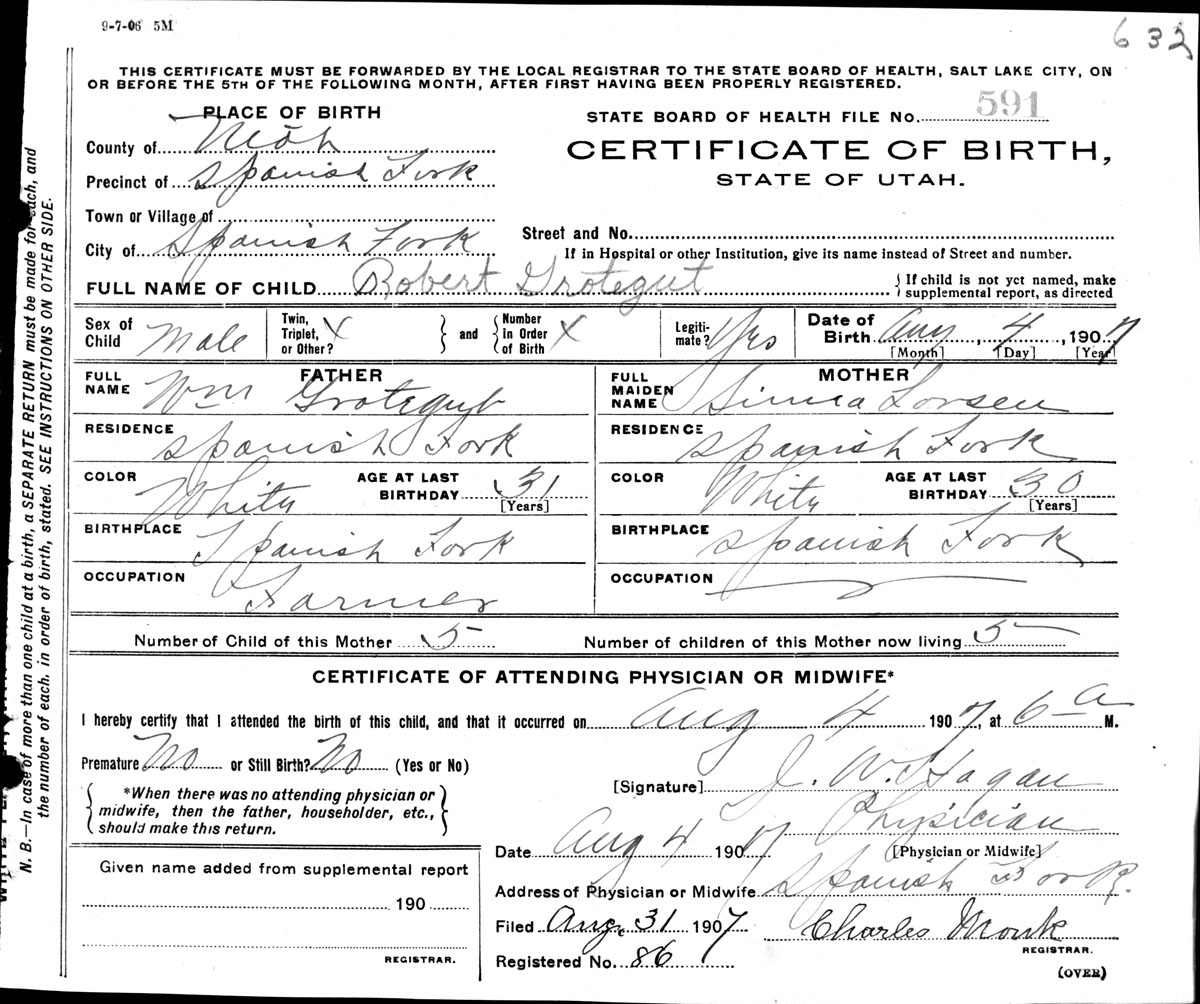 9-7-06 5M
632
THIS CERTIFICATE MUST BE FORWARDED BY THE LOCAL REGISTRAR TO THE STATE BOARD OF HEALTH, SALT LAKE CITY, ON
OR BEFORE THE 5TH OF THE FOLLOWING MONTH, AFTER FIRST HAVING BEEN PROPERLY REGISTERED.
PLACE OF BIRTH
STATE BOARD OF HEALTH FILE No. 591
County of Utah
CERTIFICATE OF BIRTH,
Precinct of Spanish Fork
STATE OF UTAH.
Town or Village of
Street and No.
City of Spanish Fork
If in Hospital or other Institution, give its name instead of Street and number.
FULL NAME OF CHILD Robert Grotegut
If child is not yet named, make
supplemental report, as directed
Sex of Child Male Twin, Triplet, or Other? X and Number in Order of Birth X Legiti-mate? Yes Date of Birth Aug 4, 1907
[Month] [Day] [Year]
FATHER
FULL NAME Wm Grotegut
MOTHER
FULL MAIDEN NAME Larsen
RESIDENCE Spanish Fork
RESIDENCE Spanish Fork
COLOR White AGE AT LAST BIRTHDAY 31 [Years]
COLOR White AGE AT LAST BIRTHDAY 30 [Years]
BIRTHPLACE Spanish Fork
BIRTHPLACE Spanish Fork
OCCUPATION Farmer
OCCUPATION
Number of Child of this Mother 5
Number of children of this Mother now living 5
CERTIFICATE OF ATTENDING PHYSICIAN OR MIDWIFE*
I hereby certify that I attended the birth of this child, and that it occurred on Aug 4 1907, at 6 a M.
Premature No or Still Birth? No (Yes or No)
[Signature] J. W. Hagan
*When there was no attending physician or
midwife, then the father, householder, etc.,
should make this return.
Physician
Date Aug 4 1907
[Physician or Midwife]
Given name added from supplemental report
Address of Physician or Midwife Spanish Fork.
190
Filed Aug. 31 1907 Charles Monk
REGISTRAR.
REGISTRAR.
Registered No. 86
(OVER)
N. B.—In case of more than one child at a birth, a SEPARATE RETURN must be made for each, and
the number of each, in order of birth, stated. SEE INSTRUCTIONS ON OTHER SIDE.